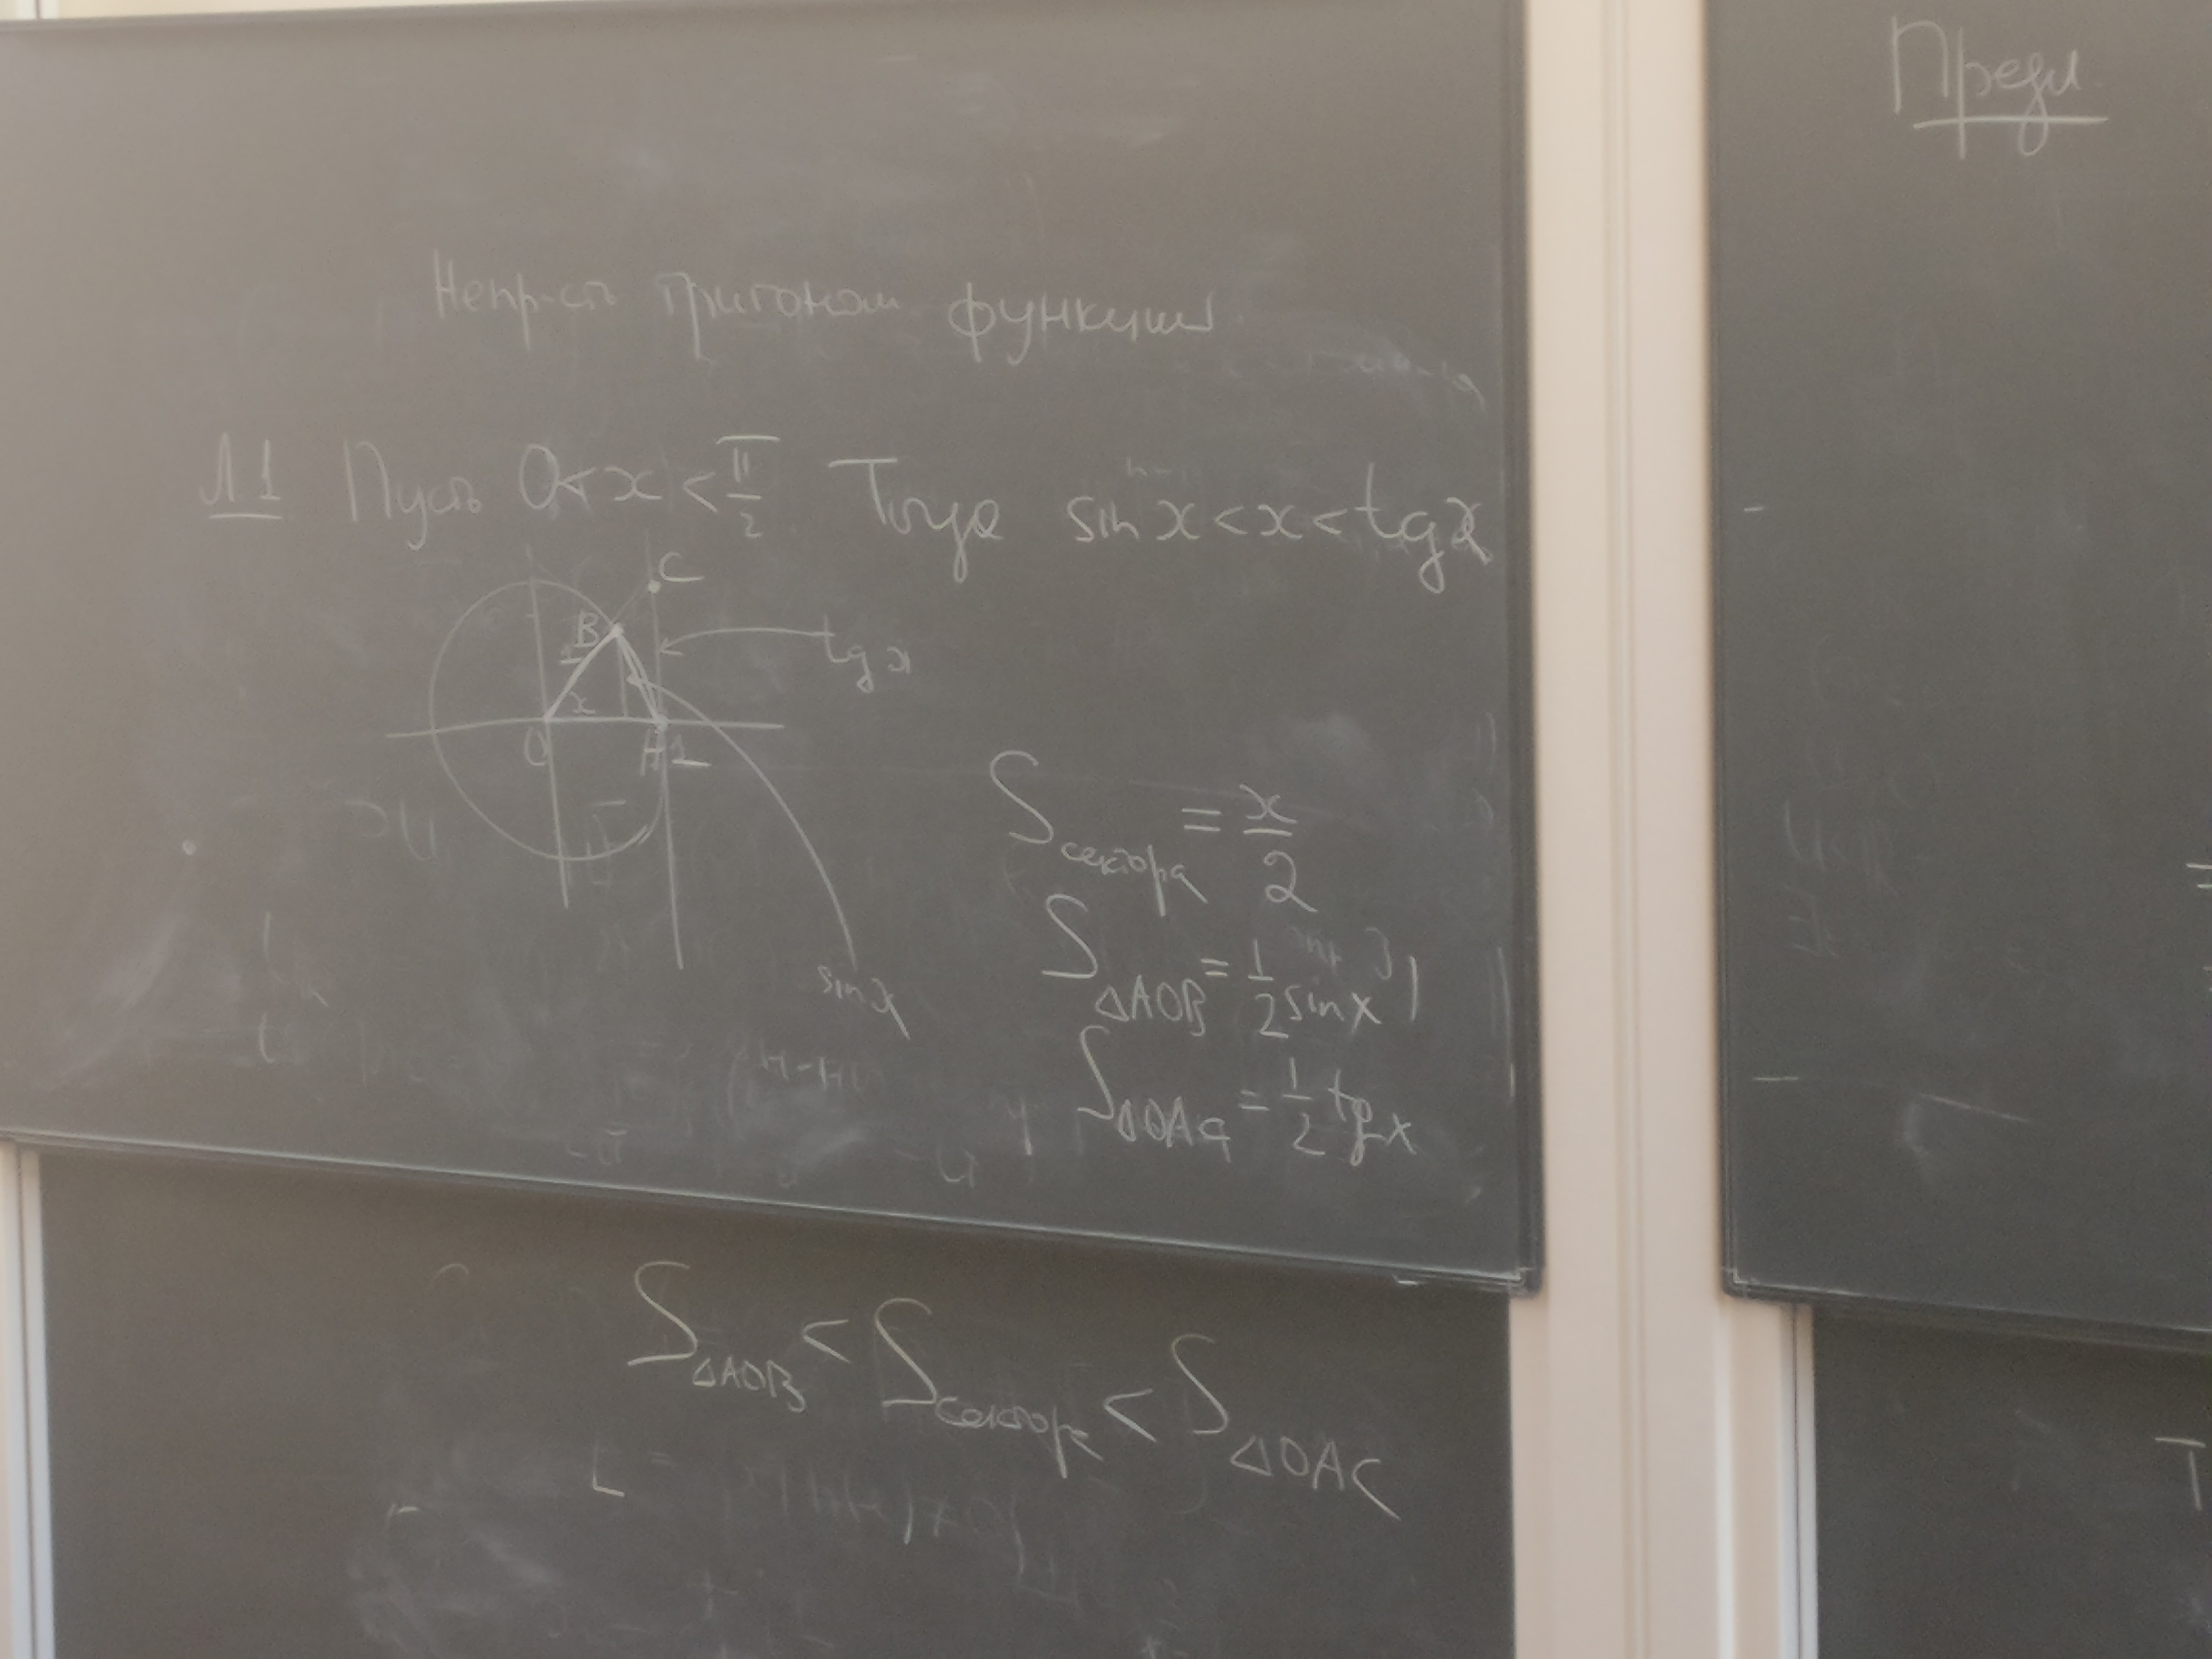 Непр-сть тригоном функций
Л1 Пусть 0<x<π/2 Тогда sin x<x<tg x
C
B
1
tg x
x
O
A 1
sin x
S сектора = x/2
S ΔAOB = 1/2 sin x
S ΔOAC = 1/2 tg x
S ΔAOB < S сектора < S ΔOAC
Предл.